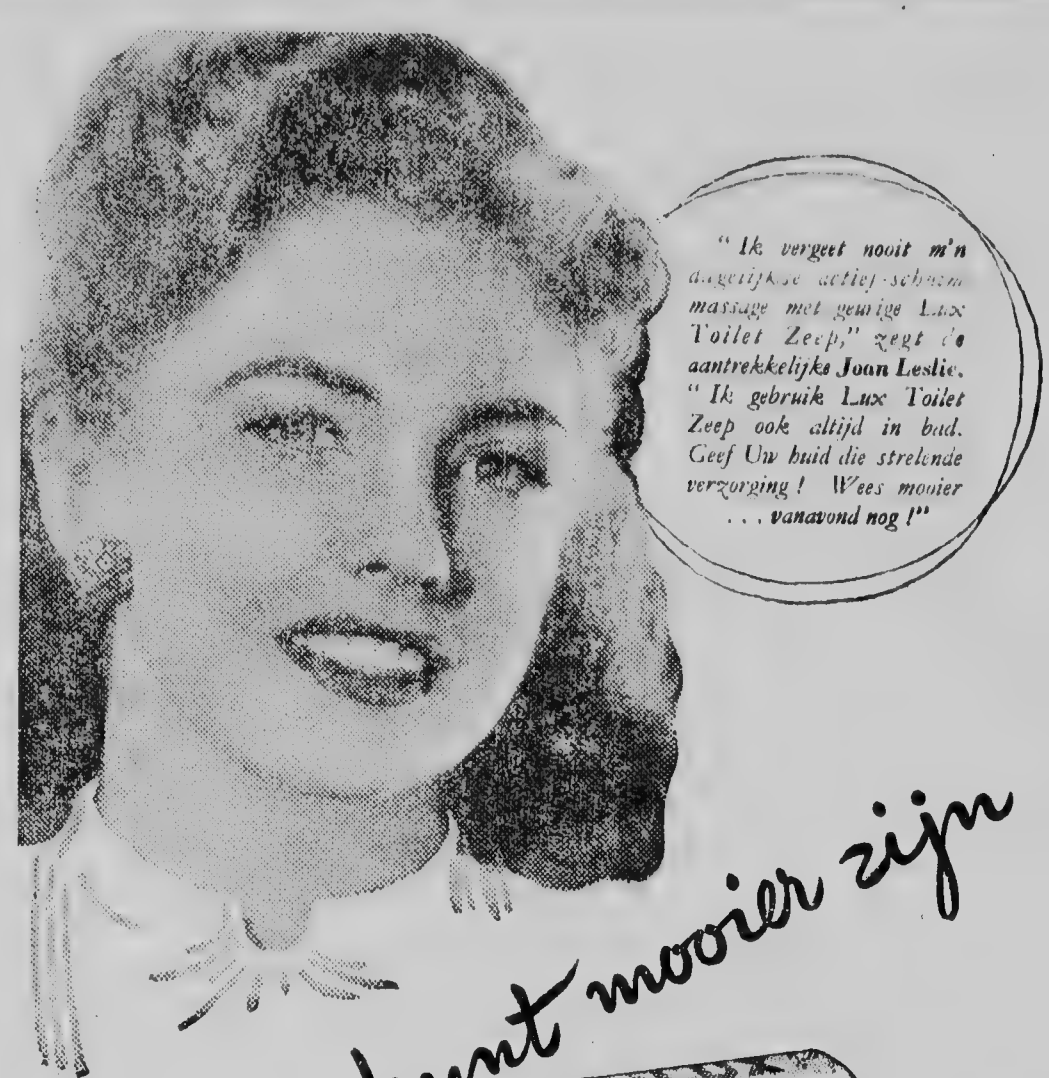 “ Ik vergeet nooit m'n
dagelijkse actief-schuim
massage met geurige Lux
Toilet Zeep,” zegt de
aantrekkelijke Joan Leslie.
“ Ik gebruik Lux Toilet
Zeep ook altijd in bad.
Geef Uw huid die strelende
verzorging ! Wees mooier
. . . vanavond nog !”
mooier zijn